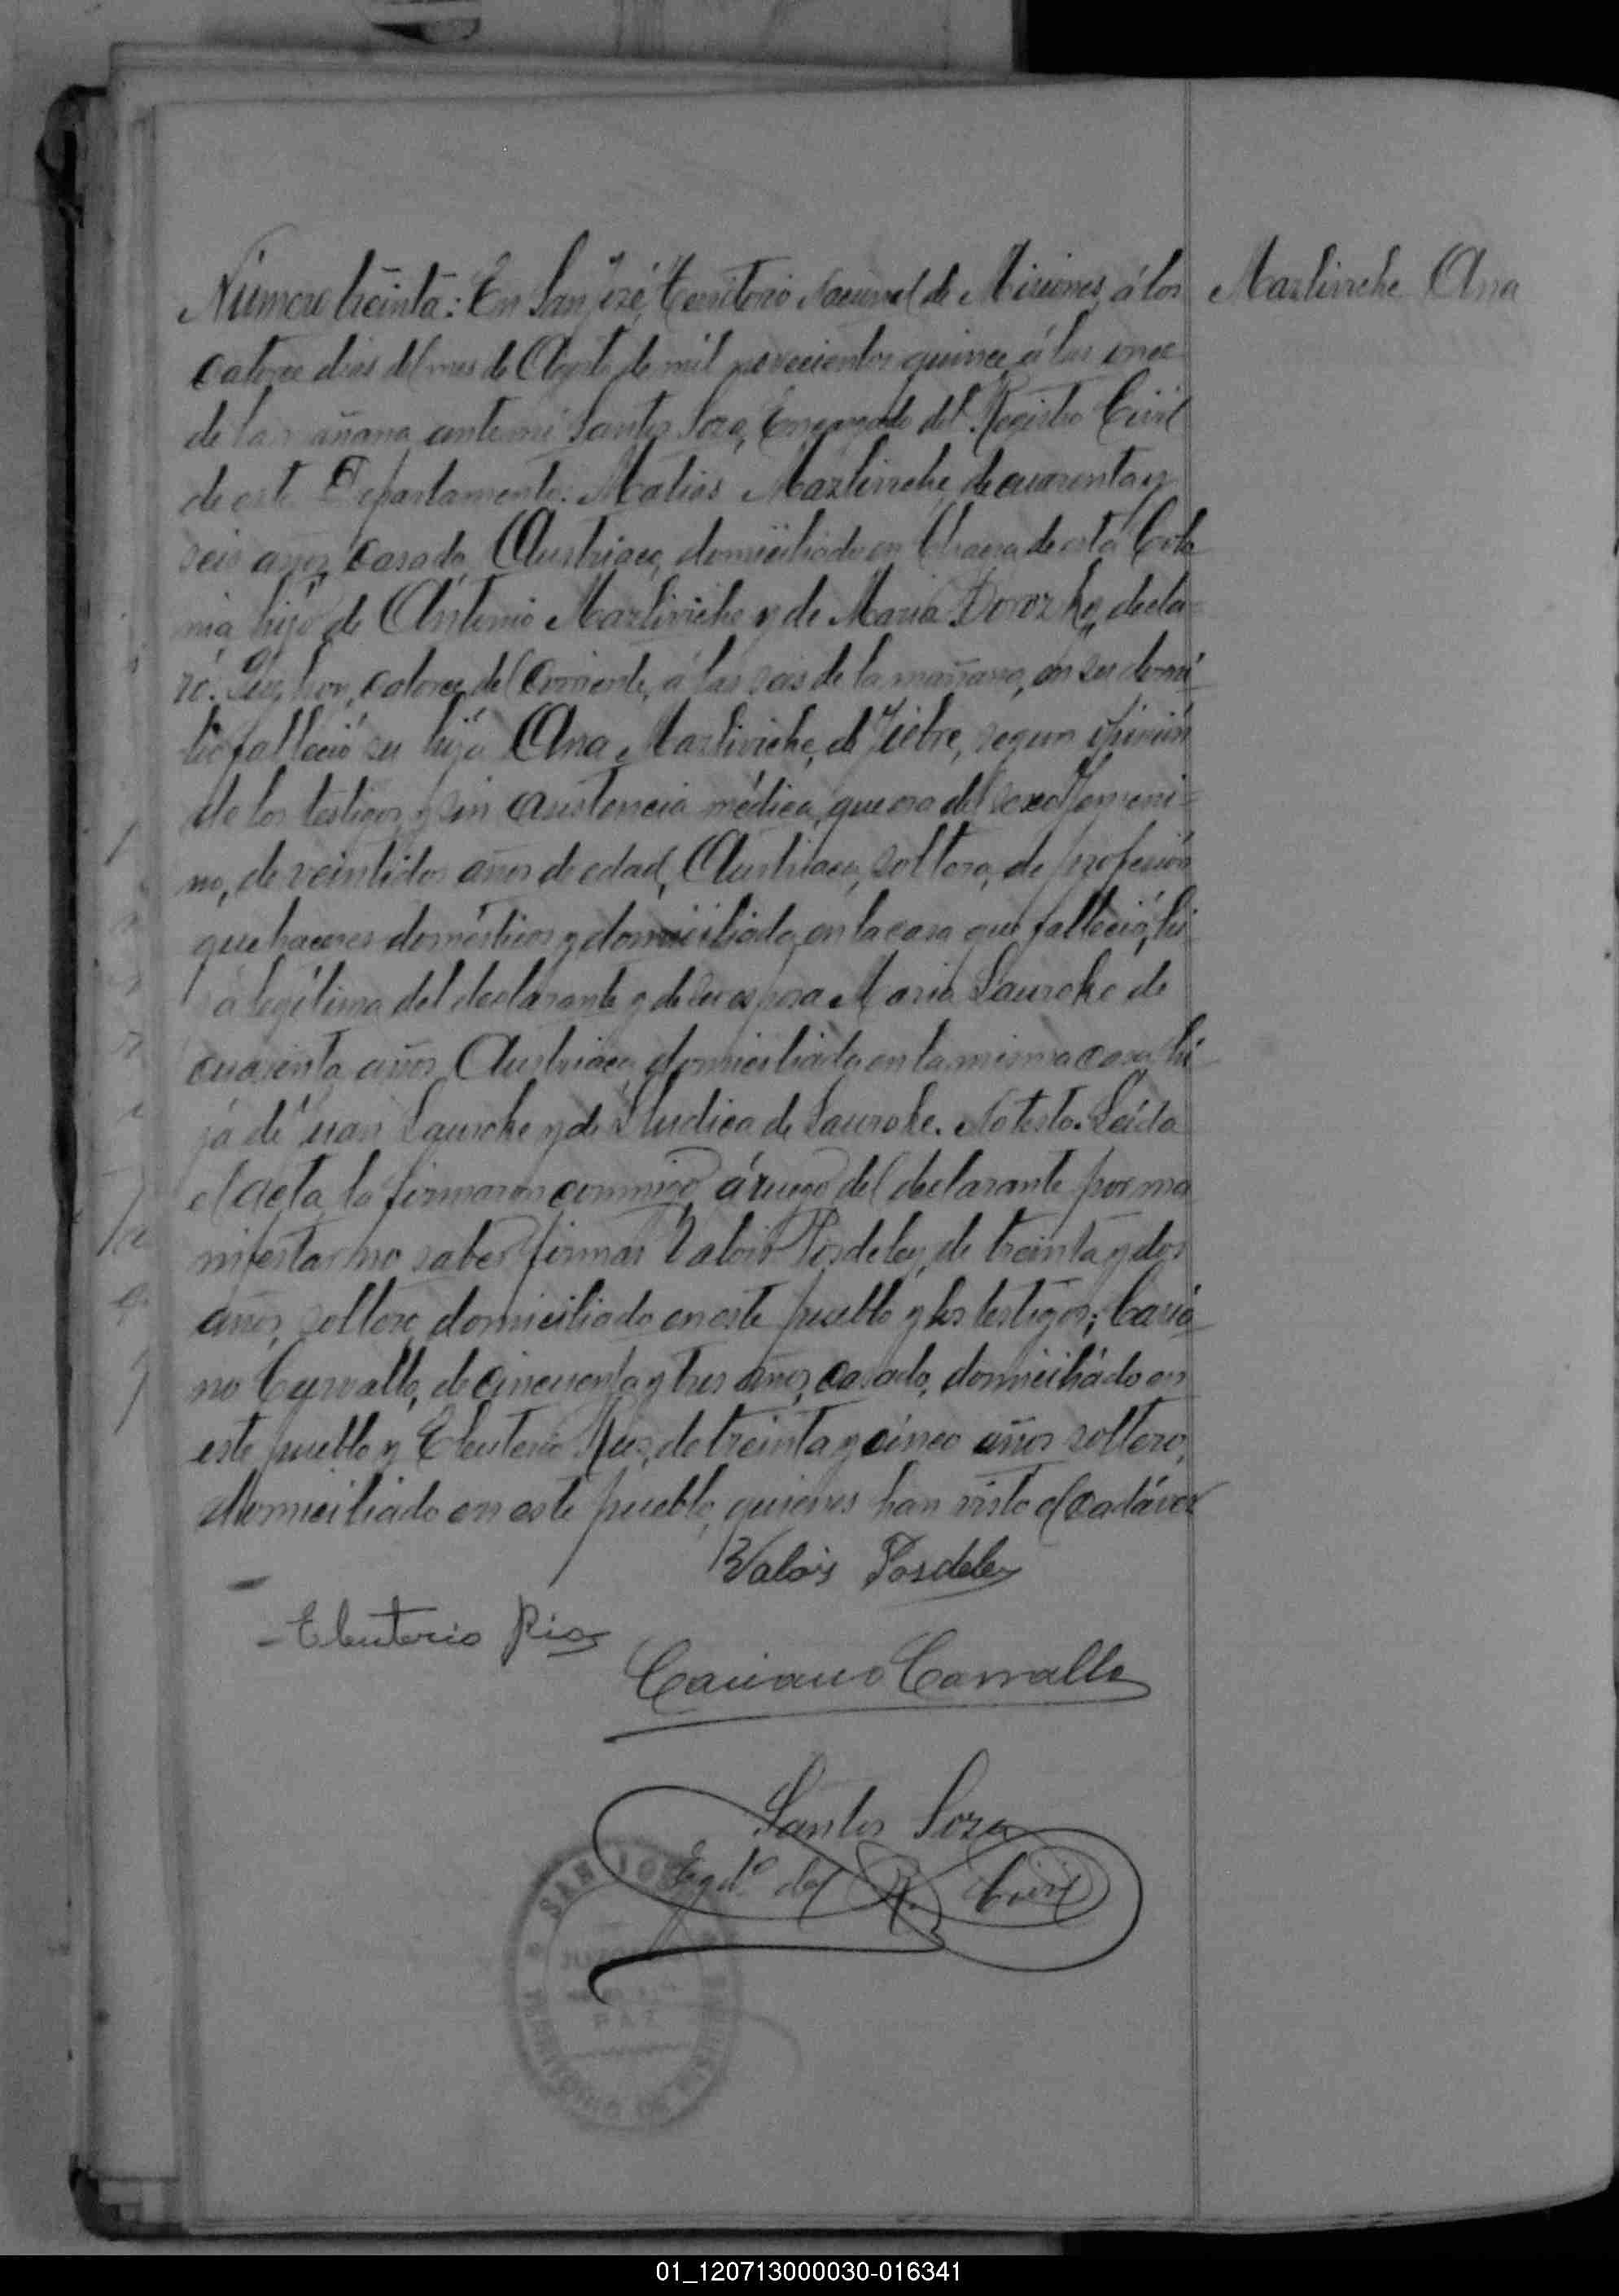 Número treinta: En San José, Territorio Nacional de Misiones, á los
Mazlinche Ana
catorce dias del mes de Agosto de mil novecientos quince, á las once
de la mañana, ante mi Santos Soza, Encargado del Registro Civil
de este Departamento: Matias Mazlinche, de cuarenta y
seis años, casado, Austriaco, domiciliado en Chacra de esta Colo
nia, hijo de Antonio Mazliniche y de Maria Dorozke, decla-
ró: Que, hoy, catorce del corriente, á las seis de la mañana, en su domi-
lio falleció su hija Ana Mazliniche, de fiebre, segun opinión
de los testigos, y sin asistencia médica, que era del sexo femeni-
no, de veintidos años de edad, Austriaca, soltera, de profesión
quehaceres domésticos y domiciliada en la casa que falleció, hi
ja legitima del declarante y de su esposa Maria Lauroke de
cuarenta años, Austriaca, domiciliada en la misma casa, hi-
ja de Juan Lauroke y de Ludica de Lauroke. No testo. Leida
el acta, la firmaron conmigo, á ruego del declarante por ma
nifestar no saber firmar Valois Posdeley, de treinta y dos
años, soltero, domiciliado en este pueblo y los testigos; Caria-
no Carvallo, de cincuenta y tres años, casado, domiciliado en
este pueblo y Eleuterio Rios, de treinta y cinco años soltero,
domiciliado en este pueblo, quienes han visto el cadáver
Valois Posdeley
- Eleuterio Rios
Cariano Carvallo
Santos Soza
Egdo. del R. Civil
SAN JOSÉ
PAZ
TERRITORIO DE MISIONES
01_120713000030-016341